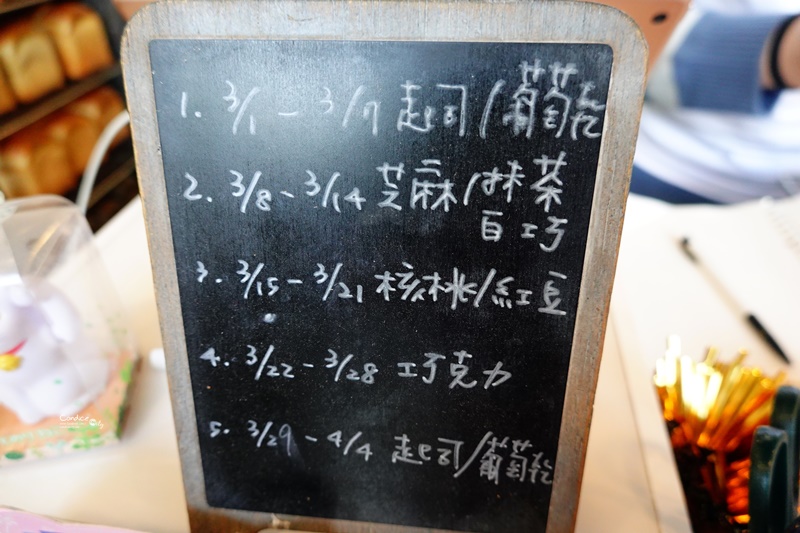 1. 3/1 - 3/7 起司/葡萄乾
2. 3/8 - 3/14 芝麻/抹茶
白巧
3. 3/15 - 3/21 核桃/紅豆
4. 3/22 - 3/28 巧克力
5. 3/29 - 4/4 起司/葡萄乾